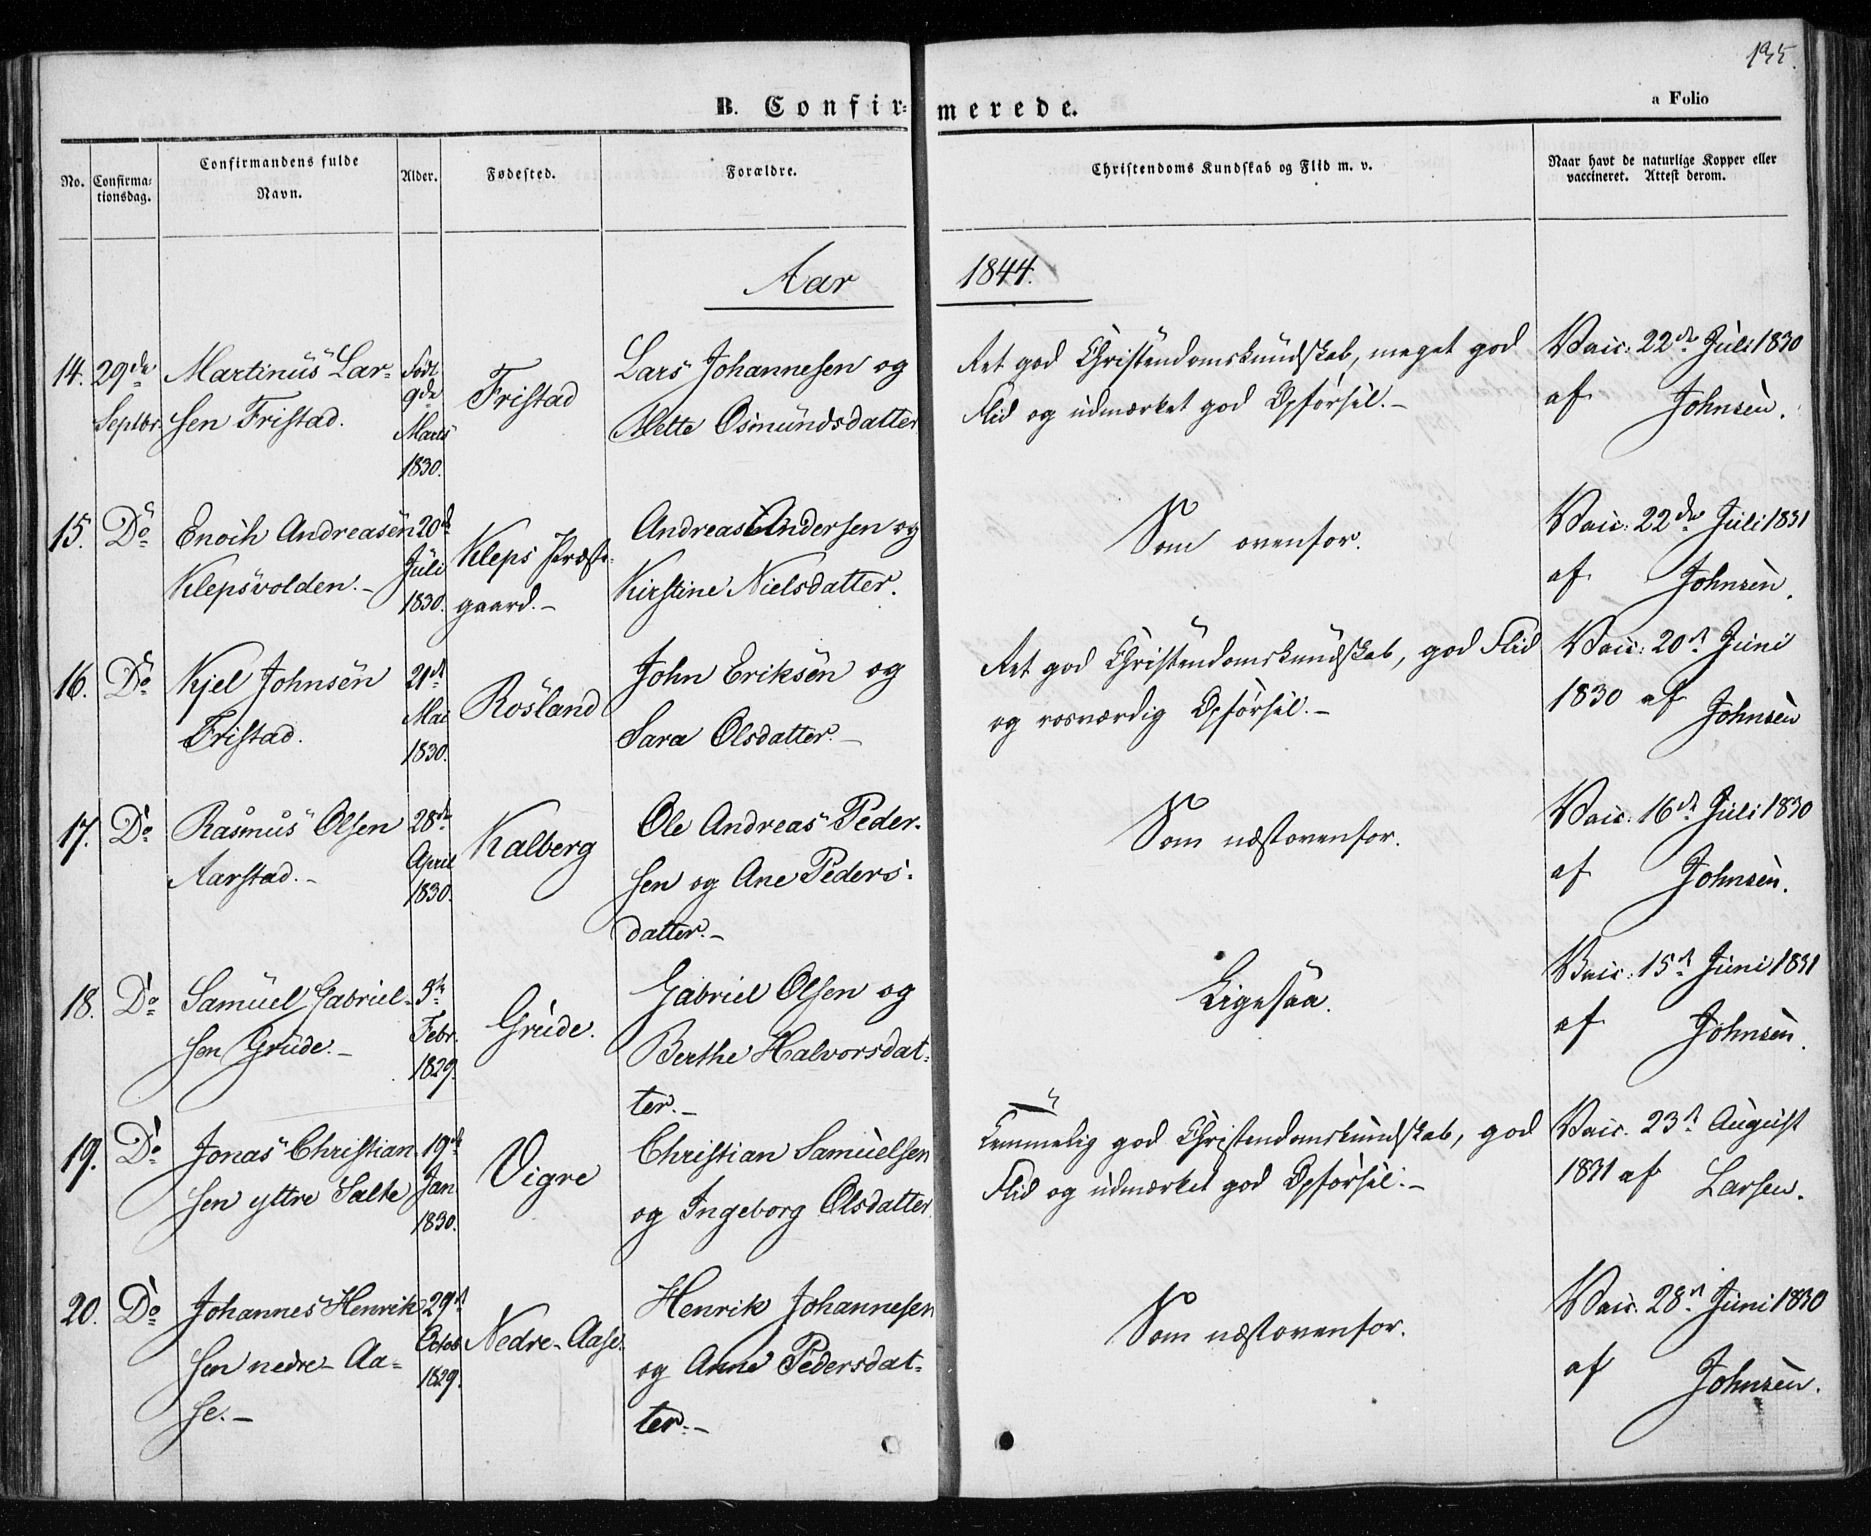 135.
B. Confir-merede.
a Folio
No. Confirma-tionsdag. Confirmandens fulde Navn. Alder. Fødested. Forældre. Christendoms Kundskab og Flid m. v. Naar havt de naturlige Kopper eller vaccineret. Attest derom.
Aar 1844.
14. 29de Martinus Lar- Født Fristad Lars Johannesen og Ret god Christendomskundskab, meget god Vacc: 22de Juli 1830
Septbr. sen Fristad. 9de Mette Osmundsdatter Flid og udmærket god Opførsel.- af Johnsen.
Marts
1830.
15. Do Enoch Andreasen 20de Kleps Præste- Andreas Andersen og Som ovenfor. Vacc: 22de Juli 1831
Klepsvolden.- Juli gaard.- Kirstine Nielsdatter. af Johnsen.
1830.
16. Do Kjel Johnsen 21de Rosland John Eriksen og Ret god Christendomskundskab, god Flid Vacc: 20de Juni
Fristad. Mai Sara Olsdatter.- og rosværdig Opførsel.- 1830 af Johnsen
1830.
17. Do Rasmus Olsen 28de Kalberg Ole Andreas Peder- Som næstovenfor. Vacc. 16de Juli 1830
Aarstad.- April sen og Ane Peders- af Johnsen.
1830. datter.-
18. Do Samuel Gabriel- 3de Grude. Gabriel Olsen og Ligesaa. Vacc: 15de Juni 1831
sen Grude.- Febr. Berthe Halvorsdat- af Johnsen.
1829. ter.-
19. Do Jonas Christian 19de Vigre Christian Samuelsen Temmelig god Christendomskundskab, god Vacc. 23de August
sen yttre Salte Jan og Ingeborg Olsdatter Flid og udmærket god Opførsel.- 1831 af Larsen.
1830.
20. Do Johannes Henrik 29de Nedre-Aase. Henrik Johannesen Som næstovenfor. Vacc. 28de Juni 1830
sen nedre-Aa- Octob og Anne Pedersdat- af Johnsen.
se.- 1829. ter.-